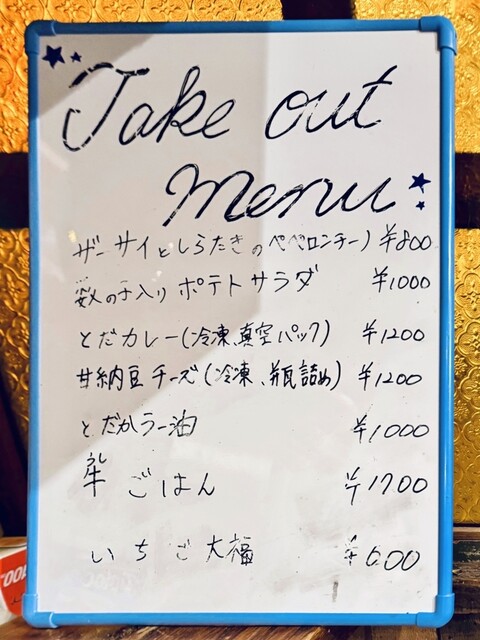 Take out
menu
ザーサイとしらたきのペペロンチーノ ¥800
数の子入りポテトサラダ ¥1000
とだカレー(冷凍、真空パック) ¥1200
甘納豆チーズ(冷凍、瓶詰め) ¥1200
とだかラー油 ¥1000
ごはん ¥1700
いちご大福 ¥600